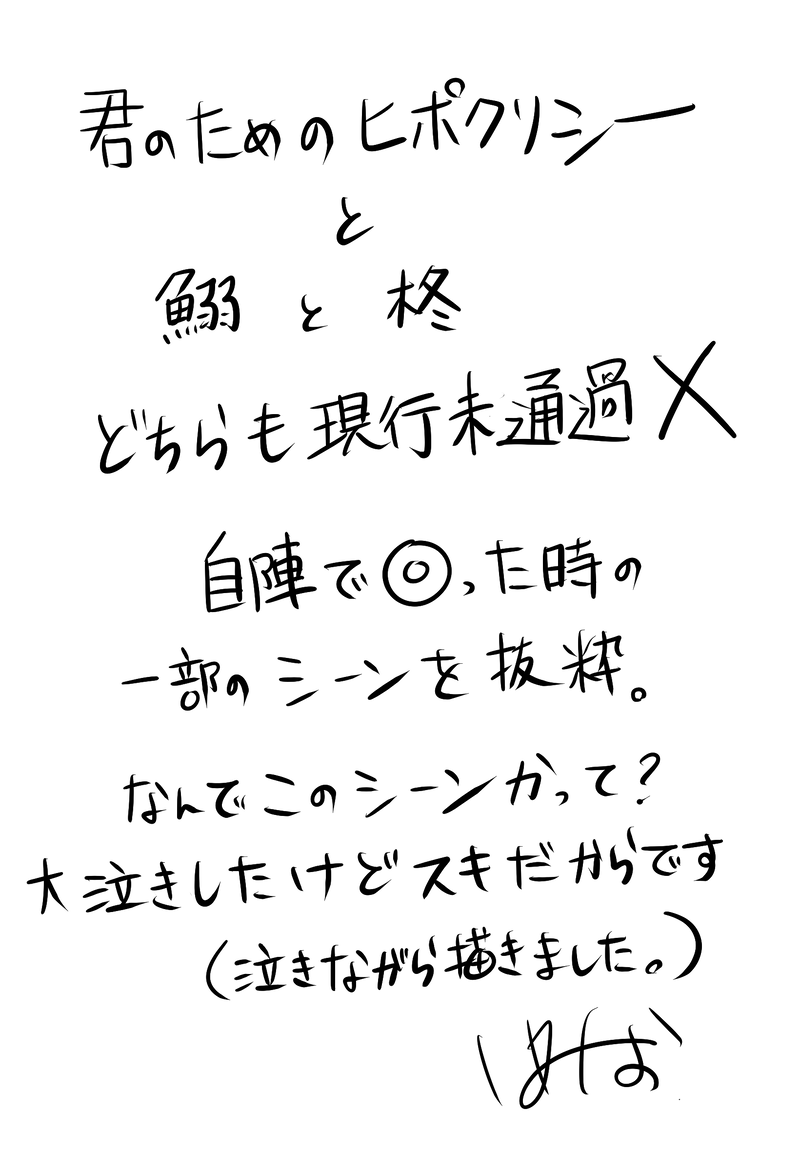 君のためのヒポクリシー
と
鰯と柊
どちらも現行未通過×
自陣で◎った時の
一部のシーンを抜粋。
なんでこのシーンかって?
大泣きしたけどスキだからです
(泣きながら描きました。)